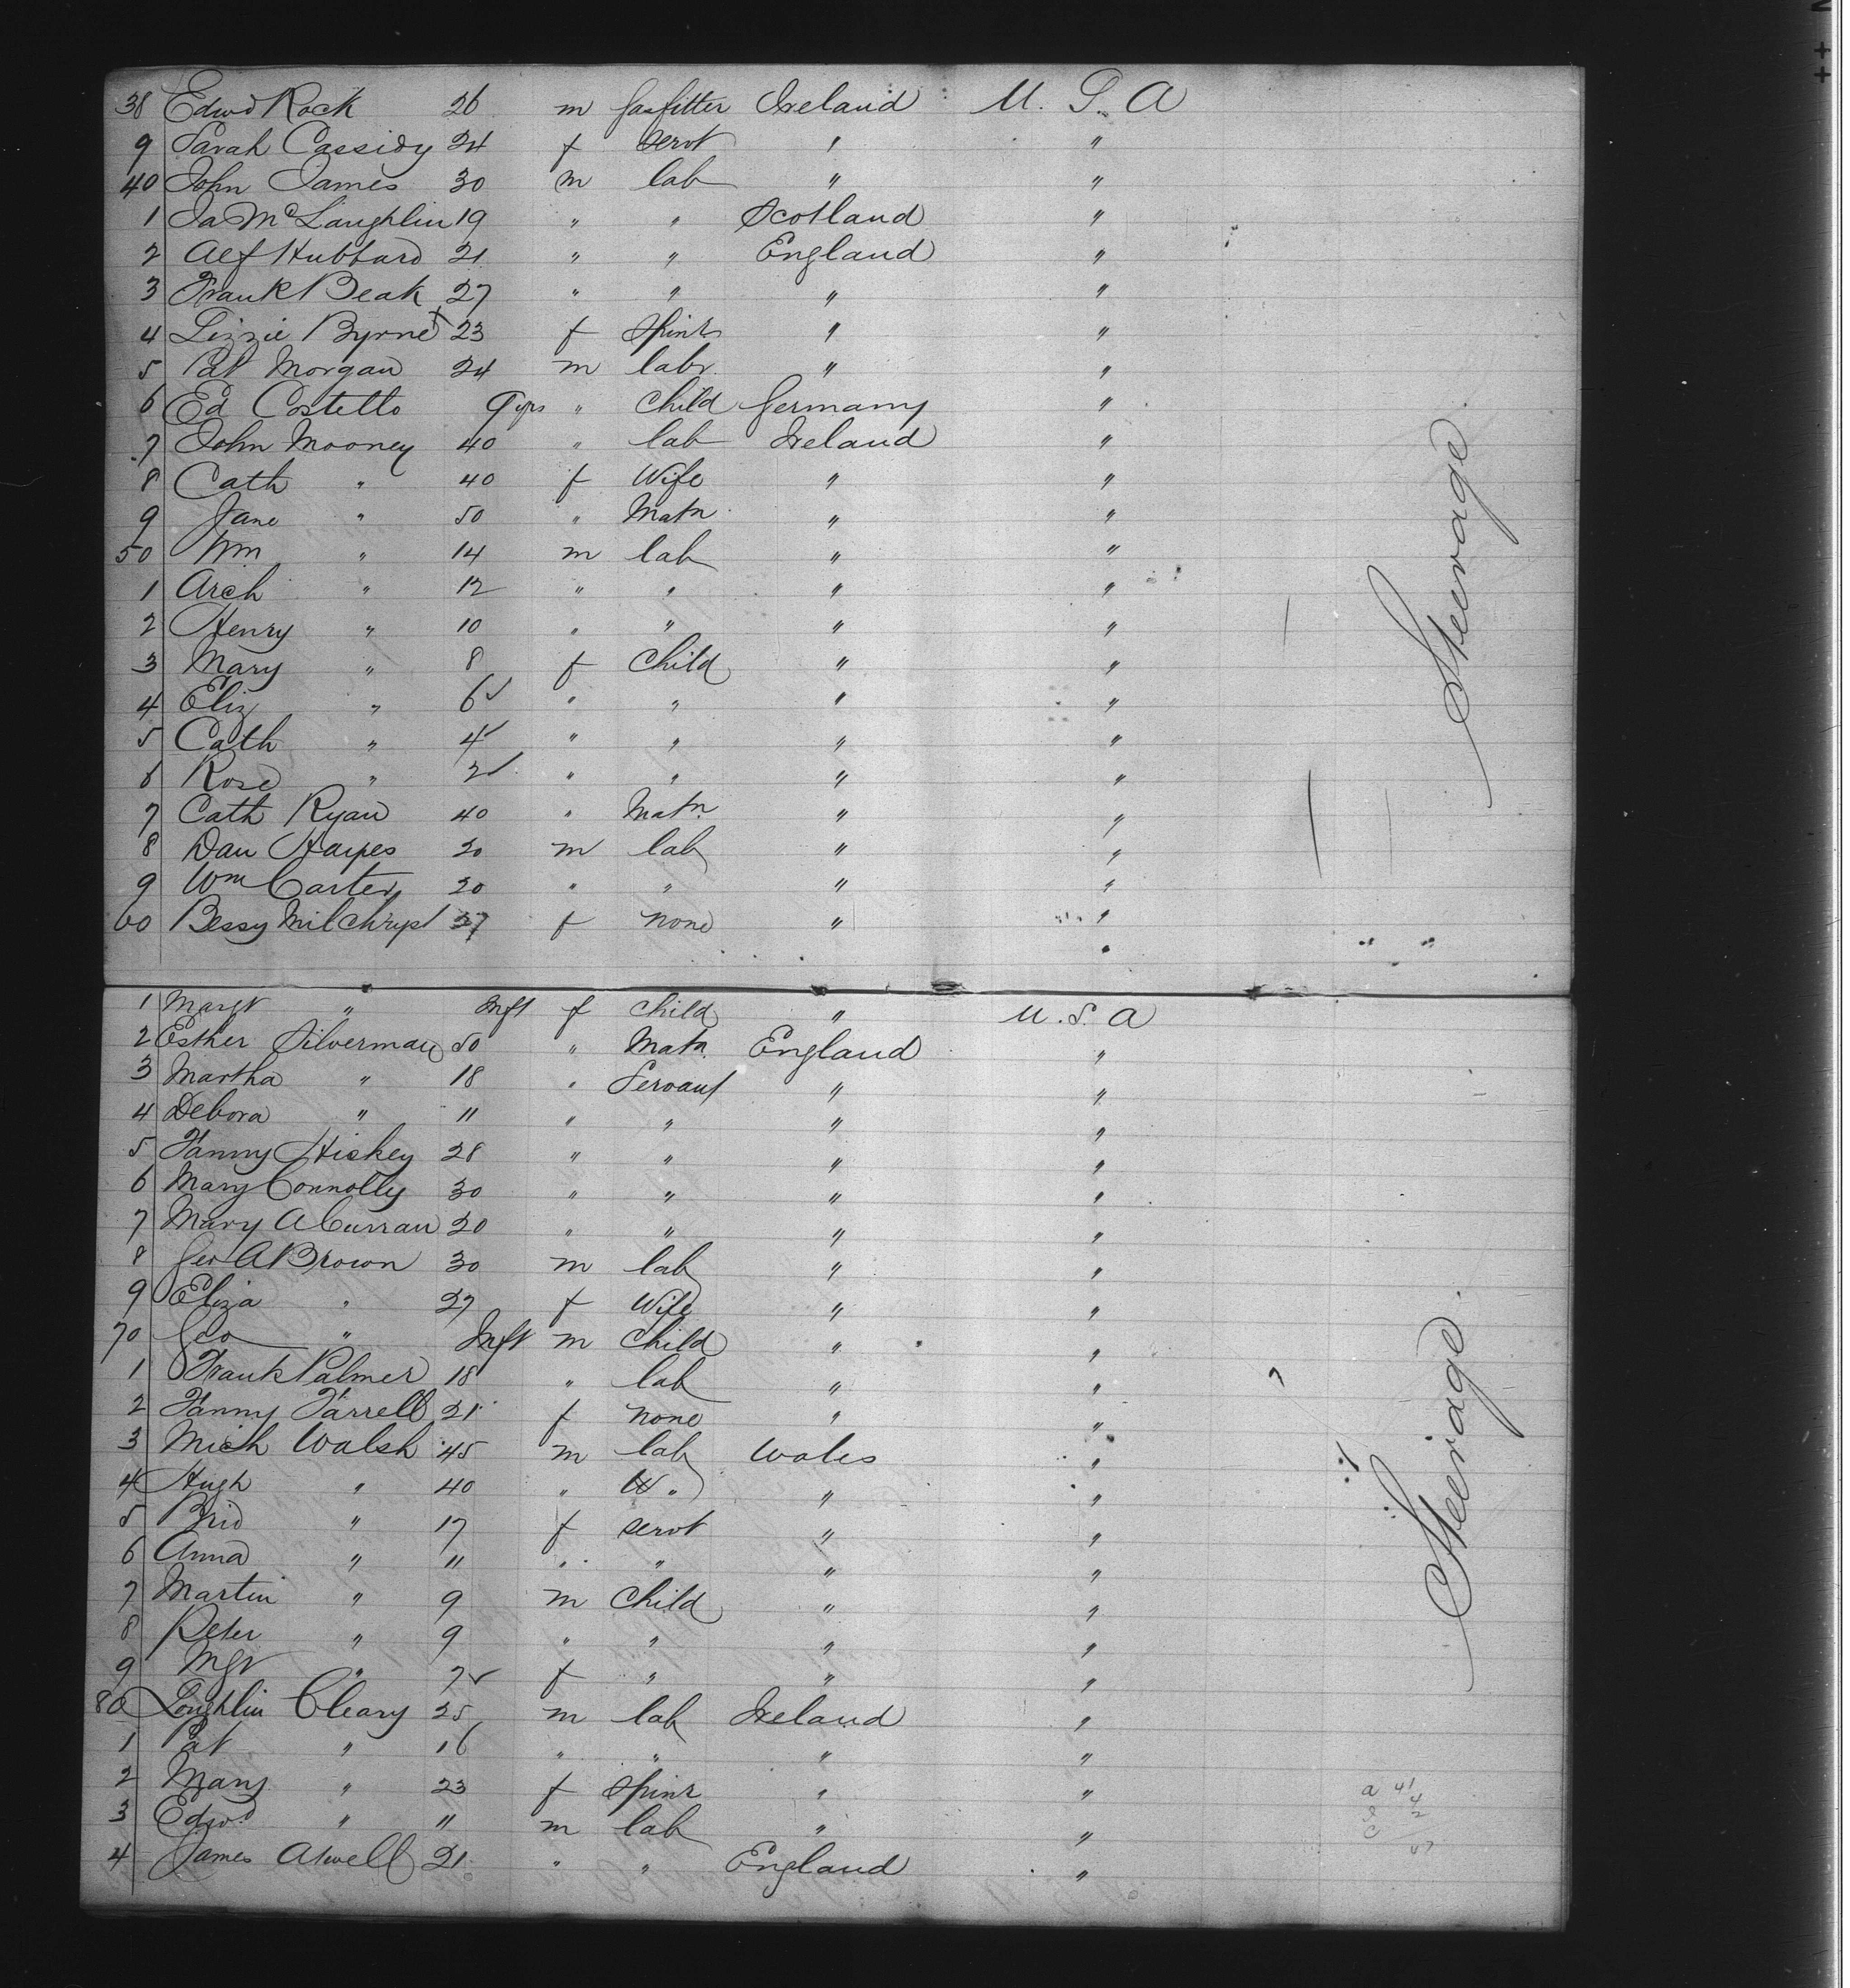 38 Edwd Rock 26 m Gasfitter Ireland U. S. A
9 Sarah Cassidy 24 f servt " "
40 John James 30 m lab " "
1 Ja McLaughlin 19 " " Scotland "
2 Alf Hubbard 21 " " England "
3 Frank Beak 27 " " " "
4 Lizzie Byrne 23 f spinr " "
5 Pat Morgan 24 m labr. " "
6 Ed Costello 9 yrs " Child Germany "
7 John Mooney 40 " lab Ireland "
8 Cath " 40 f Wife " "
9 Jane " 50 " Matn " "
50 Wm " 14 m lab " "
1 Arch " 12 " " " "
2 Henry " 10 " " " "
3 Mary " 8 f Child " "
4 Eliz " 6 " " " "
5 Cath " 4 " " " "
6 Rose " 2 " " " "
7 Cath Ryan 40 " Matn " "
8 Dan 20 m lab " "
9 Wm Carter 20 " " " "
60 Bessy Milchryst 27 f none " "
Steerage
1 Margt " Inft f Child " U. S. A
2 Esther Silverman 50 " Matn England "
3 Martha " 18 " Servant " "
4 Debora " 11 " " " "
5 Fanny Hickey 28 " " " "
6 Mary Connolly 30 " " " "
7 Mary A Curran 20 " " " "
8 Geo A Brown 30 m lab " "
9 Eliza " 27 f Wife " "
70 Geo " Inft m Child " "
1 Frank Palmer 18 " lab " "
2 Fanny Farrell 21 f none " "
3 Mich Walsh 45 m lab Wales "
4 Hugh " 40 " W " " "
5 Brid " 17 f servt " "
6 Anna " 11 " " " "
7 Martin " 9 m Child " "
8 Peter " 9 " " " "
9 Mgt " 7 f " " "
80 Loughlin Cleary 25 m lab Ireland "
1 Pat " 16 " " " "
2 Mary " 23 f spinr " "
3 Edwd " 11 m lab " "
4 James Atwell 21 " " England "
Steerage
a 41
4
2
47